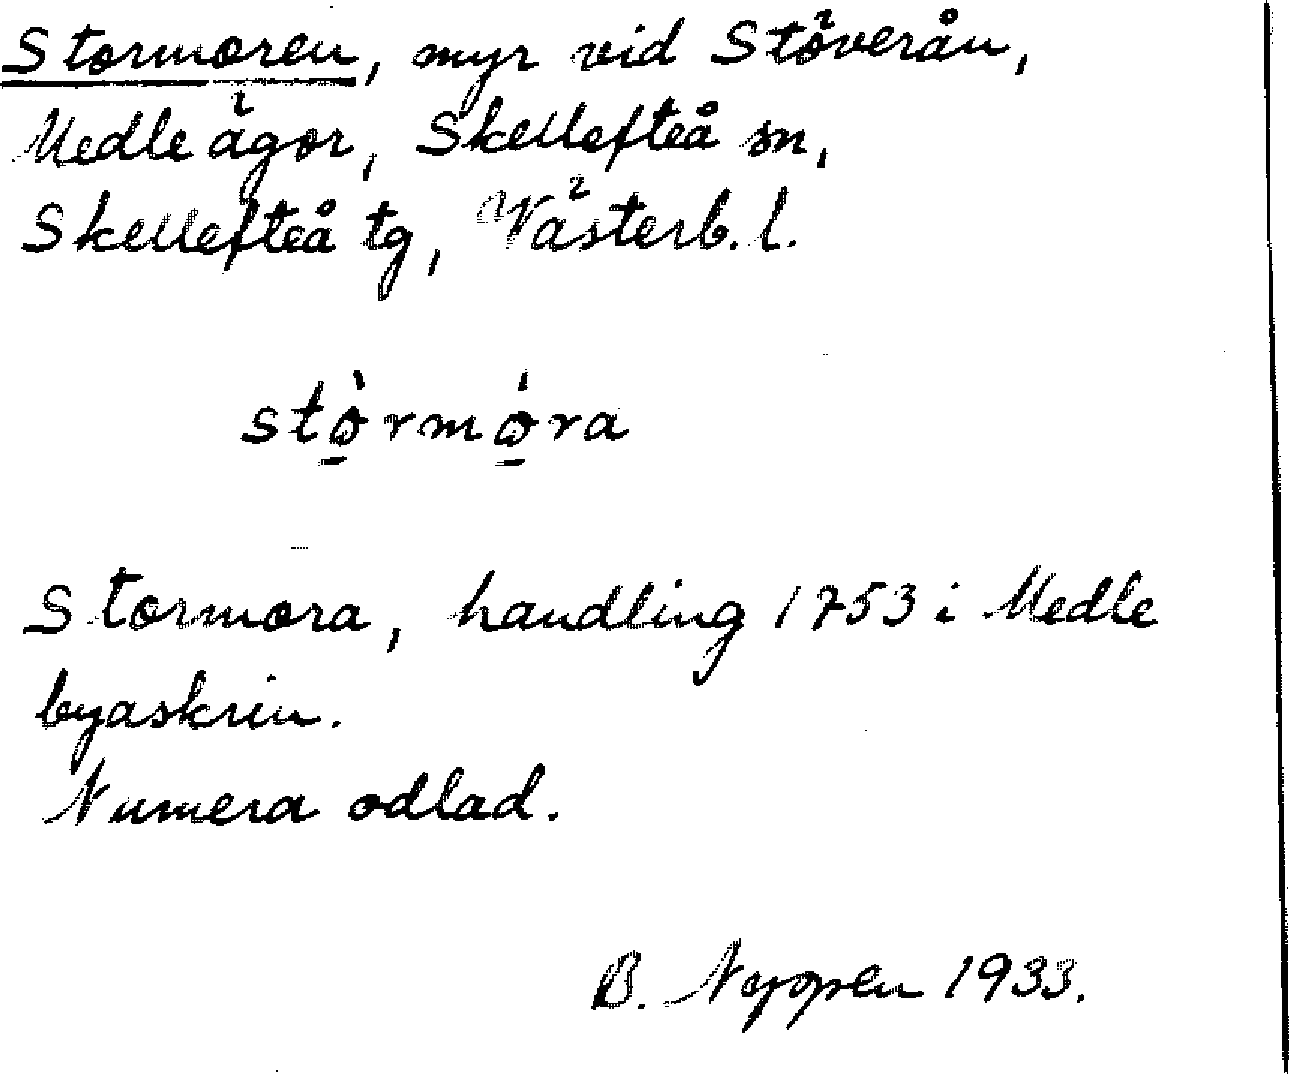 Stormoren, myr vid Stöverån,
Medle ägor, Skellefteå sn,
Skellefteå tg, Västerb. l.
stò̱rmó̱ra
Stormora, handling 1753 i Medle
byaskrin.
Numera odlad.
B. Nyppen 1933.